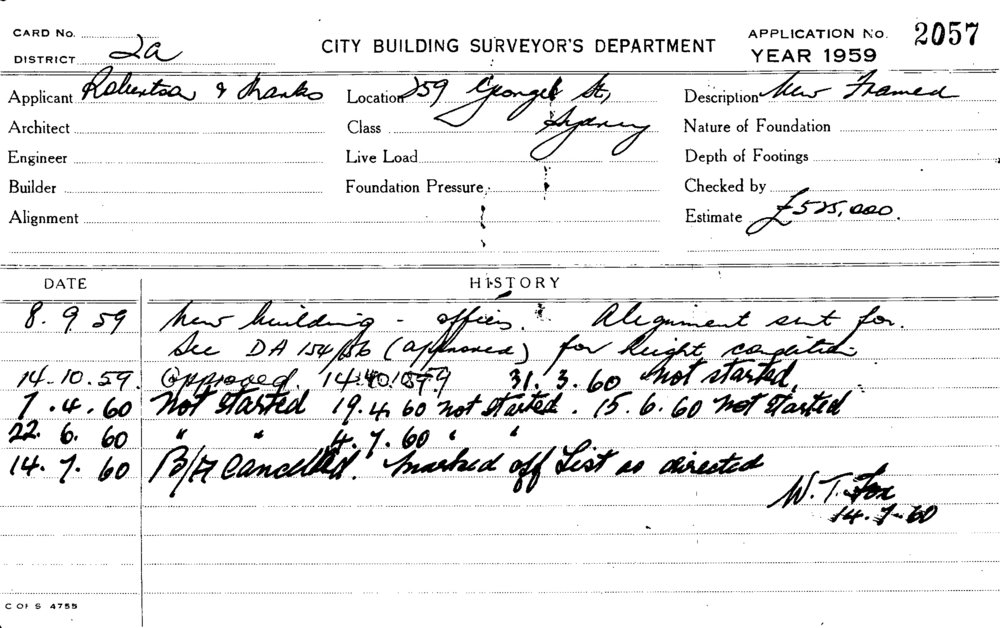 CARD No.
DISTRICT 2a
CITY BUILDING SURVEYOR'S DEPARTMENT
APPLICATION No. 2057
YEAR 1959
Applicant Robertson & Marks Location 259 George St, Description New Framed
Architect Class Sydney Nature of Foundation
Engineer Live Load Depth of Footings
Builder Foundation Pressure Checked by
Alignment Estimate £525,000.
DATE HISTORY
8. 9. 59 New building - offices. Alignment sent for.
See DA 154/56 (approved) for height condition
14.10.59. Approved. 14.10.1959 31.3.60 Not started.
7.4.60 Not started 19.4.60 not started. 15.6.60 Not started
22.6.60 " " 4.7.60 " "
14.7.60 B/A Cancelled. Marked off List as directed
W. T. Fox
14.7.60
C OF S 4755